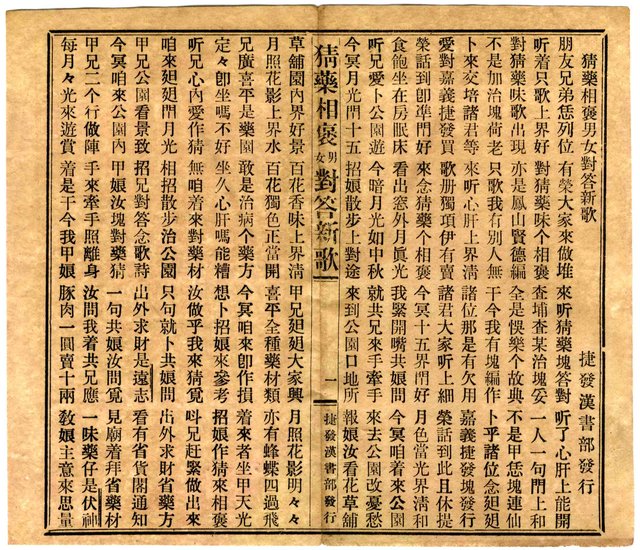 猜藥相褒男女對答新歌 捷發漢書部發行
朋友兄弟恁列位 有榮大家來做堆 來听猜藥塊答對 听了心肝上能開
听着只歌上界好 對猜藥味个相褒 查埔查某治塊妥 一人一句門上和
對猜藥味歌出現 亦是鳳山賢德編 全是悞樂个故典 不是甲恁塊連仙
不是加治塊荷老 只歌我有別人無 干今我有塊編作 卜乎諸位念廻廻
卜來交培諸君等 來听心肝上界清 諸位那是有欠用 嘉義捷發塊發行
愛對嘉義捷發買 歌册獨項伊有賣 諸君大家听上細 榮話到此且休提
榮話到卽準門好 來念猜藥个相褒 今冥十五界門好 月色當光界清和
食飽坐在房眠床 看出窓外月眞光 我緊開嘴共娘問 今冥咱着來公園
听兄愛卜公園遊 今暗月光如中秋 就共兄來手牽手 來去公園改憂愁
今冥月光門十五 招娘散步上對途 來到公園口地所 報娘汝看花草舖
猜藥相褒男女對答新歌 一 捷發漢書部發行
草舖園內界好景 百花香味上界清 甲兄廻廻大家興 月照花影明々々
月照花影上界水 百花獨色正當開 喜平全種藥材類 亦有蜂蝶四過飛
兄廣喜平是藥園 敢是治病个藥方 今冥咱來卽作損 着來者坐甲天光
定々卽坐嗎不好 坐久心肝嗎能糟 想卜招娘來參考 招娘作猜來相褒
听兄心內愛作猜 無咱着來對藥材 汝做乎我來猜覓 呌兄赶緊做出來
咱來廻廻門月光 相招散步治公園 只句就卜共娘問 出外求財省藥方
甲兄公園看景致 招兄對答念歌詩 出外求財是遠志 看有省貨閣通知
今冥咱來公園內 甲娘汝塊對藥猜 一句共娘汝問覓 見廟着拜省藥材
甲兄二个行做陣 手來牽手照離身 汝問我着共兄應 一味藥仔是伏神
每月々光來遊賞 着是干今我甲娘 豚肉一圓賣十兩 敎娘主意來思量